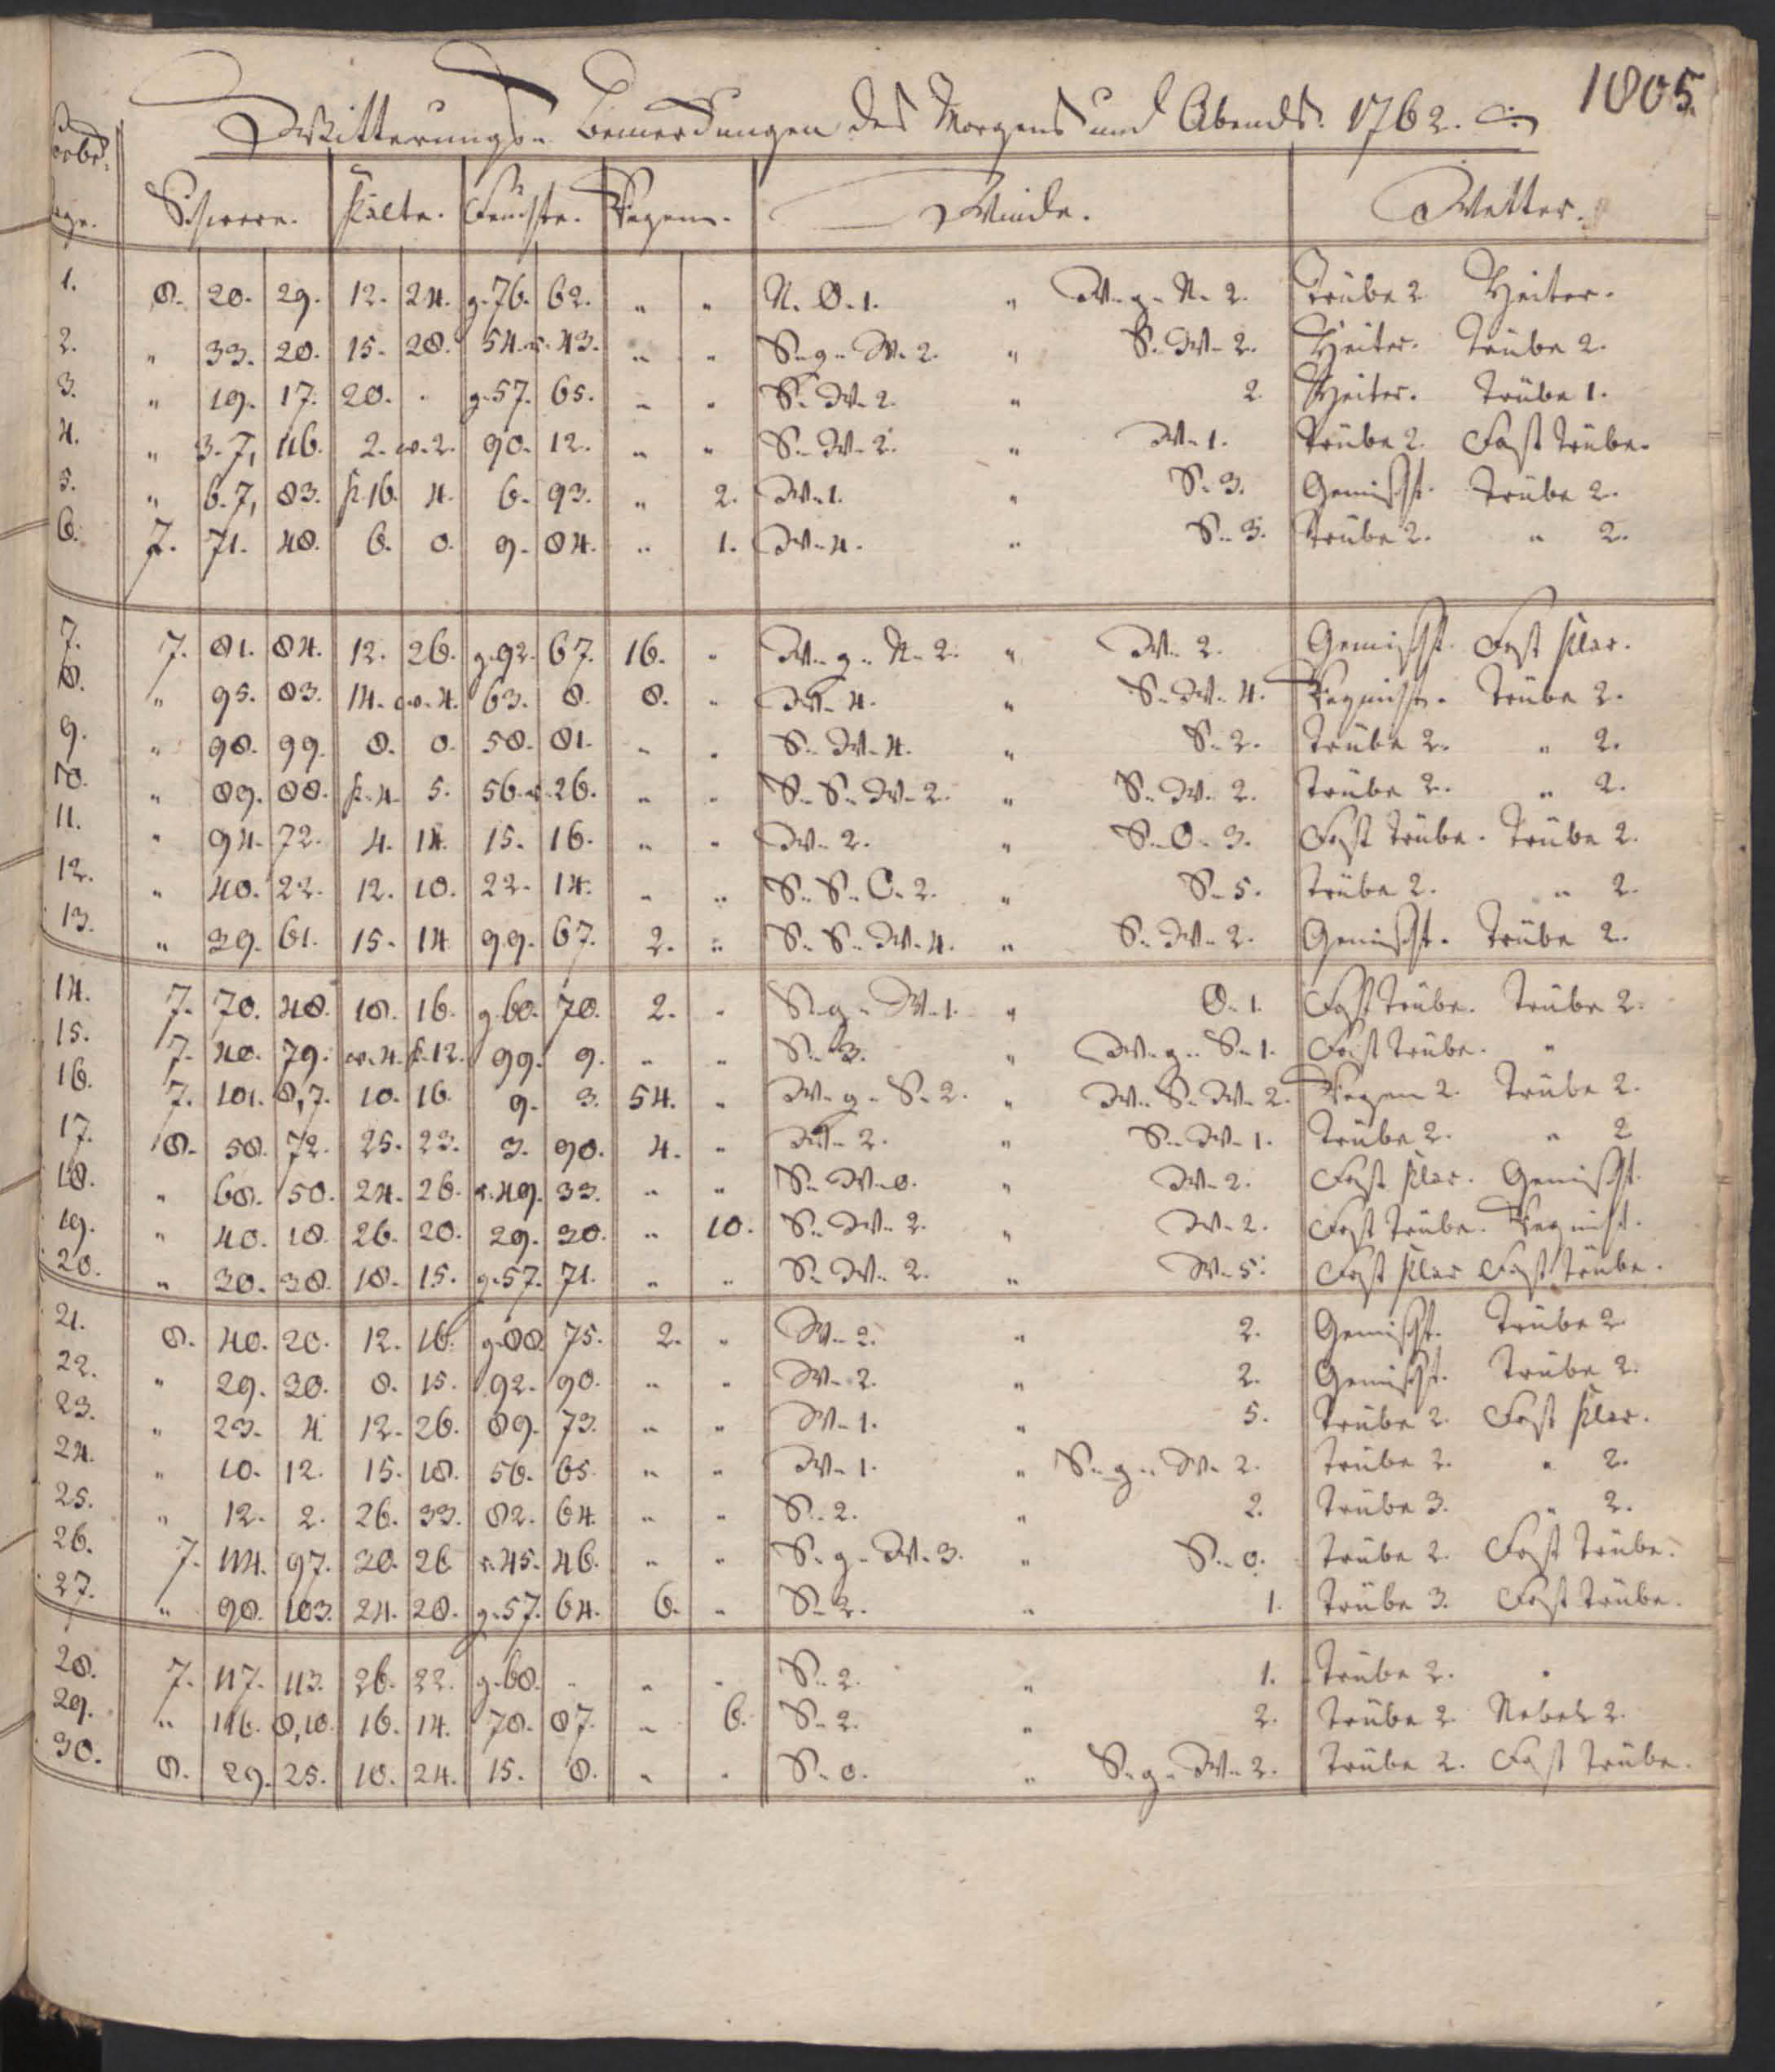 1805.
Witterungs- Bemerkungen des Morgens und Abends. 1762.
Schwere. Kälte. Feuchte. Regen. Winde. Wetter.
1. 8. 20. 29. 12. 24. g. 76. 62. " " N. O. 1. " W. g. N. 2. Trübe 2 Heiter.
2. " 33. 20. 15. 28. 54. r. 43. " " S. g. W. 2. " S. W. 2. Heiter. Trübe 2.
3. " 19. 17. 20. " g. 57. 65. " " S. W. 2. " 2. Heiter. Trübe 1.
4. " 3. 7, 116. 2. w. 2. 90. 12. " " S. W. 2. " W. 1. Trübe 2. Fast trübe.
5. " 6. 7, 83. k. 16. 4. 6. 93. " 2. W. 1. " S. 3. Gemischt. Trübe 2.
6. 7. 71. 48. 6. 0. 9. 84. " 1. W. 4. " S. 3. Trübe 2. " 2.
7. 7. 81. 84. 12. 26. g. 92. 67. 16. " W. g. N. 2. " W. 2. Gemischt. Fast klar.
8. " 95. 83. 14. w. 4. 63. 8. 8. " W. 4. " S. W. 4. Regnicht. Trübe 2.
9. " 98. 99. 8. 0. 58. 81. " " S. W. 4. " S. 2. Trübe 2. " 2.
10. " 89. 88. k. 4. 5. 56. r. 26. " " S. S. W. 2. " S. W. 2. Trübe 2. " 2.
11. " 94. 72. 4. 14. 15. 16. " " W. 2. " S. O. 3. Fast trübe. Trübe 2.
12. " 40. 22. 12. 10. 22. 14. " " S. S. O. 2. " S. 5. Trübe 2. " 2.
13. " 39. 61. 15. 14 99. 67. 2. " S. S. W. 4. " S. W. 2. Gemischt. Trübe 2.
14. 7. 70. 48. 18. 16. g. 60. 70. 2. " S. g. W. 1. " O. 1. Fast trübe. Trübe 2.
15. 7. 40. 79. w. 4. k. 12. 99. 9. " " S. 3. " W. g. S. 1. Fast trübe. "
16. 7. 101. 8, 7. 10. 16. 9. 3. 54. " W. g. S. 2. " W. S. W. 2. Regen 2. Trübe 2.
17. 8. 58. 72. 25. 23. 3. 90. 4. " W. 2. " S. W. 1. Trübe 2. " 2
18. " 68. 50. 24. 26. r. 49. 33. " " S. W. 0. " W. 2. Fast klar. Gemischt.
19. " 40. 18. 26. 20. 29. 30. " 10. S. W. 2. " W. 2. Fast trübe. Regnicht.
20. " 30. 38. 18. 15. g. 57. 71. " " S. W. 2. " W. 5. Fast klar Fast trübe.
21. 8. 40. 20. 12. 16. g. 88. 75. 2. " W. 2. " 2. Gemischt. Trübe 2
22. " 29. 30. 8. 15. 92. 90. " " W. 2. " 2. Gemischt. Trübe 2.
23. " 23. 4. 12. 26. 89. 73. " " W. 1. " 5. Trübe 2. Fast klar.
24. " 10. 12. 15. 18. 56. 65. " " W. 1. " S. g. W. 2. Trübe 2. " 2.
25. " 12. 2. 26. 33. 82. 64. " " S. 2. " 2. Trübe 3. " 2.
26. 7. 114. 97. 30. 26 r. 45. 46. " " S. g. W. 3. " S. 0. Trübe 2. Fast trübe.
27. " 98. 103. 24. 28. g. 57. 64. 6. " S. 2. " 1. Trübe 3. Fast trübe.
28. 7. 117. 113. 26. 22. g. 68. " " " S. 2. " 1. Trübe 2. "
29. " 116. 8, 10. 16. 14. 78. 87. " 6. S. 2. " 2. Trübe 2 Nebel 2.
30. 8. 29. 25. 10. 24. 15. 8. " " S. 0. " S. g. W. 2. Trübe 2. Fast trübe.